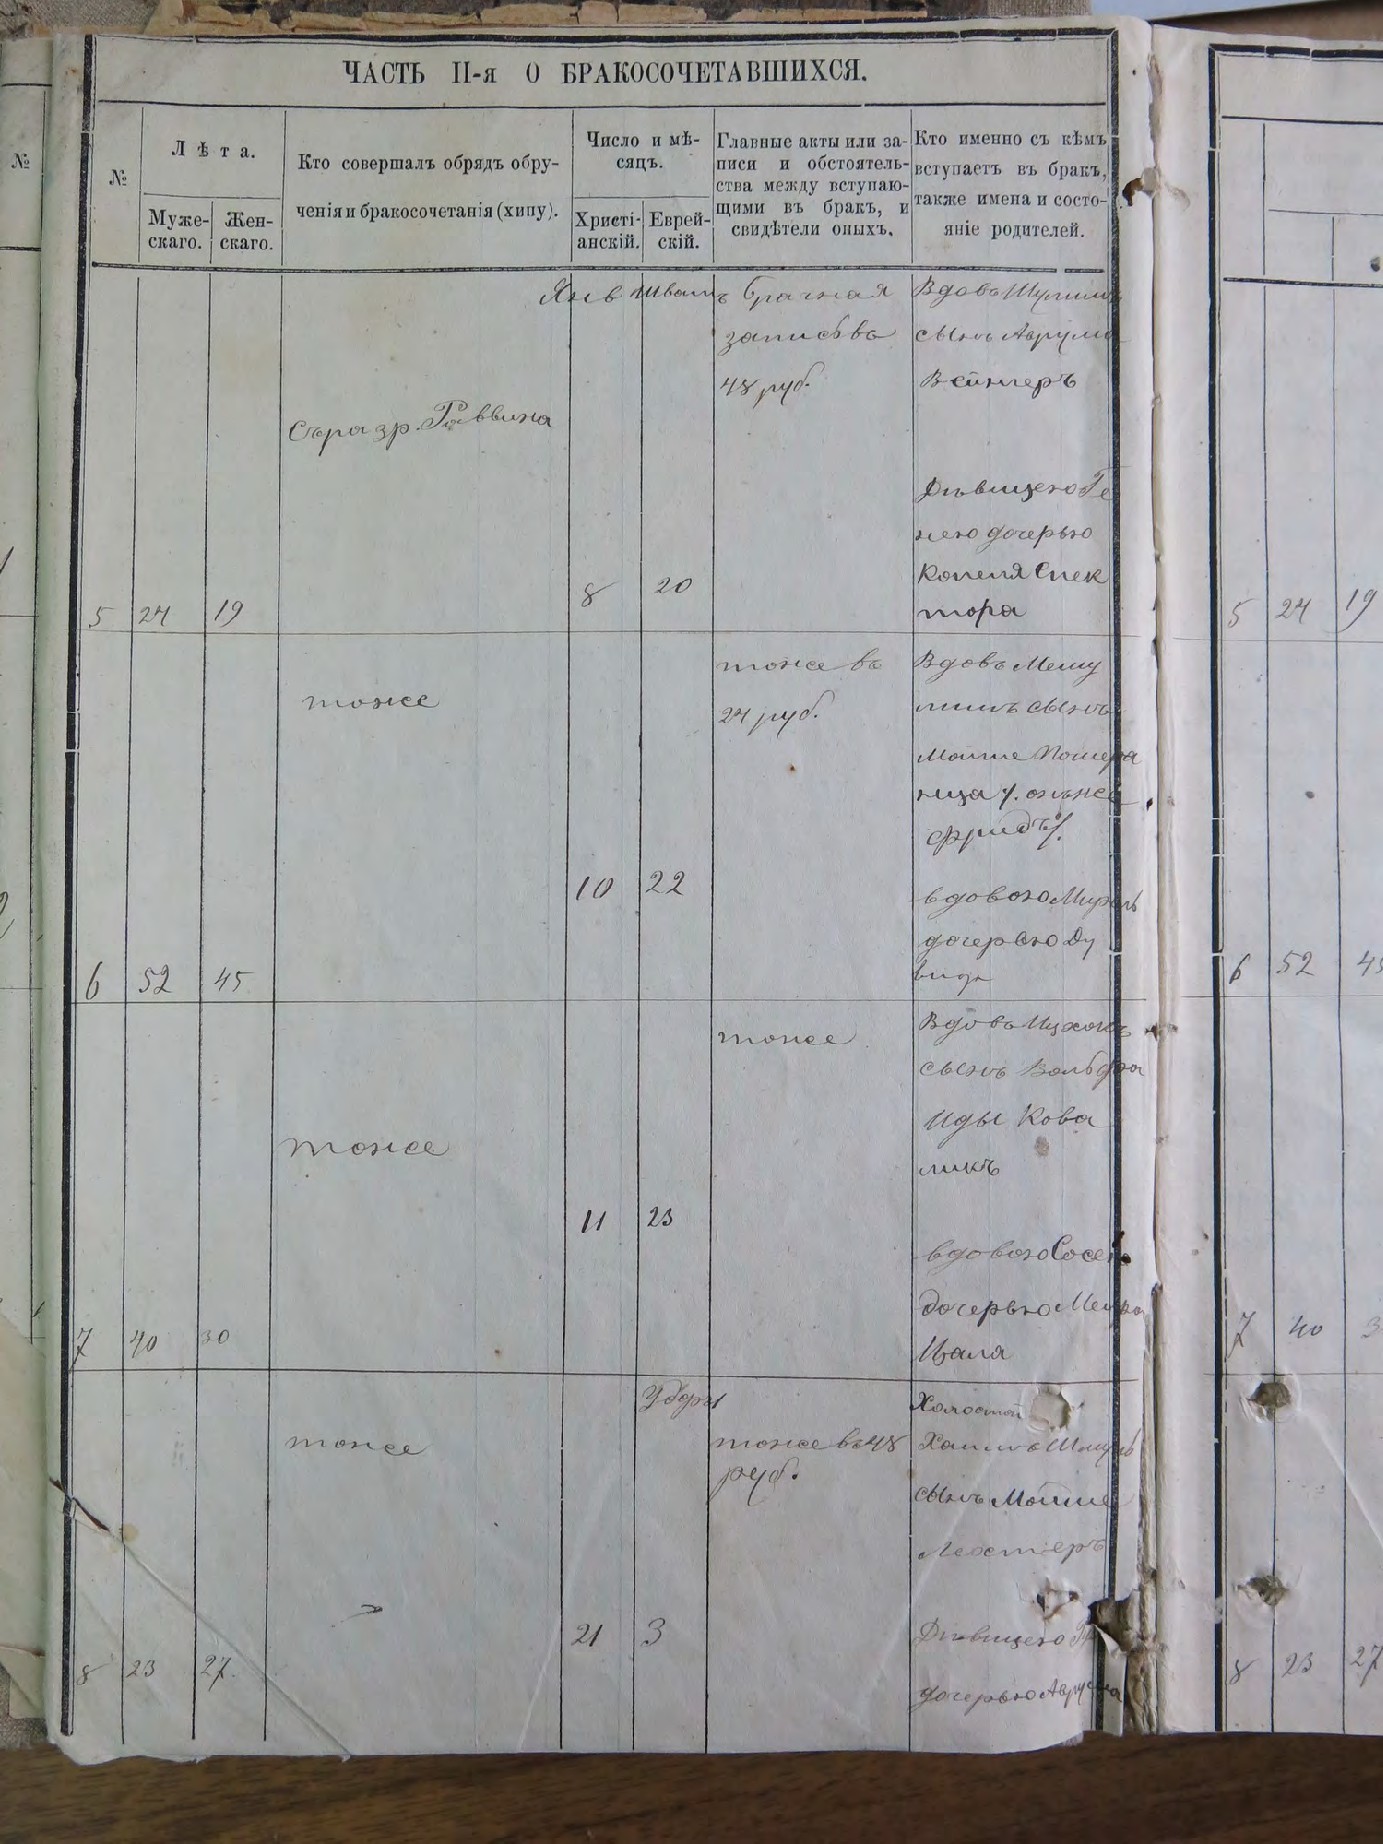 ЧАСТЬ II-я О БРАКОСОЧЕТАВШИХСЯ.
№
№
Лѣта.
Муже-
скаго.
Жен-
скаго.
Кто совершалъ обрядъ обру-
ченія и бракосочетанія (хипу).
Число и мѣ-
сяцъ.
Христі-
анскій.
Еврей-
скій.
Главные акты или за-
писи и обстоятель-
ства между вступаю-
щими въ бракъ, и
свидѣтели оныхъ.
Кто именно съ кѣмъ
вступаетъ въ бракъ,
также имена и состо-
яніе родителей.
5
24
19
Съ разр. Раввина
Янв
8
Шватъ
20
Брачная
запись въ
48 руб.
Вдовъ
сынъ Аврума
Вейнеръ
Дѣвицею
дочерью
Копеля Спек
тора
6
52
45
тоже
10
22
тоже въ
24 руб.
Вдовъ Мешу
лимъ сынъ
Мошше Помера
нца /. онъ же
Фридъ /.
вдовою
дочерью Ду
вида
7
40
30
тоже
11
23
тоже
Вдовъ Ицхокъ
сынъ Вольфа
Иды Кова
ликъ
вдовою Сосею
дочерью
8
23
27.
тоже
21
3
тоже въ 48
руб.
Холостой
Хаимъ Шмуль
сынъ Мошше
Дѣвицею
дочерью Аврума
5
24
19
6
52
45
7
40
8
23
27